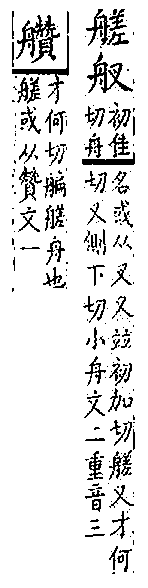 艖
舣
初佳
切舟
名或从叉又竝初加切艖又才何
切又側下切小舟文二重音三
才何切艑艖舟也
艖或从贊文一